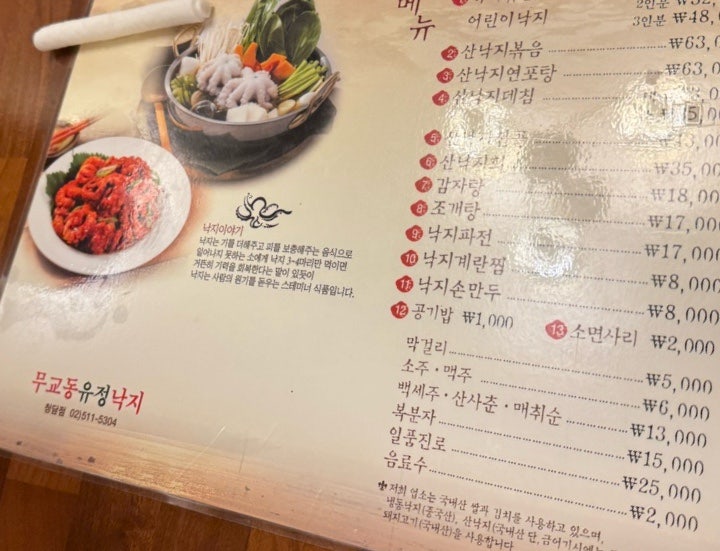 메뉴
어린이낙지
2인분
3인분 ₩48,
2 산낙지볶음 ₩63,
3 산낙지연포탕 ₩63,0
4 산낙지데침
5
6 산낙지회 ₩35,00
7 감자탕 ₩18,00
8 조개탕 ₩17,000
9 낙지파전 ₩17,000
10 낙지계란찜 ₩8,000
11 낙지손만두 ₩8,000
12 공기밥 ₩1,000
13 소면사리 ₩2,000
막걸리 ₩5,000
소주·맥주 ₩6,000
백세주·산사춘·매취순 ₩13,000
복분자 ₩15,000
일품진로 ₩25,000
음료수 ₩2,000
저희 업소는 국내산 쌀과 김치를 사용하고 있으며,
냉동낙지(중국산), 산낙지(국내산 단, 금어기시에
돼지고기(국내산)을 사용합니다
낙지이야기
낙지는 기를 더해주고 피를 보충해주는 음식으로
일어나지 못하는 소에게 낙지 3~4마리만 먹이면
거뜬히 기력을 회복한다는 말이 있듯이
낙지는 사람의 원기를 돋우는 스테미너 식품입니다.
무교동유정낙지
청담점 02)511-5304